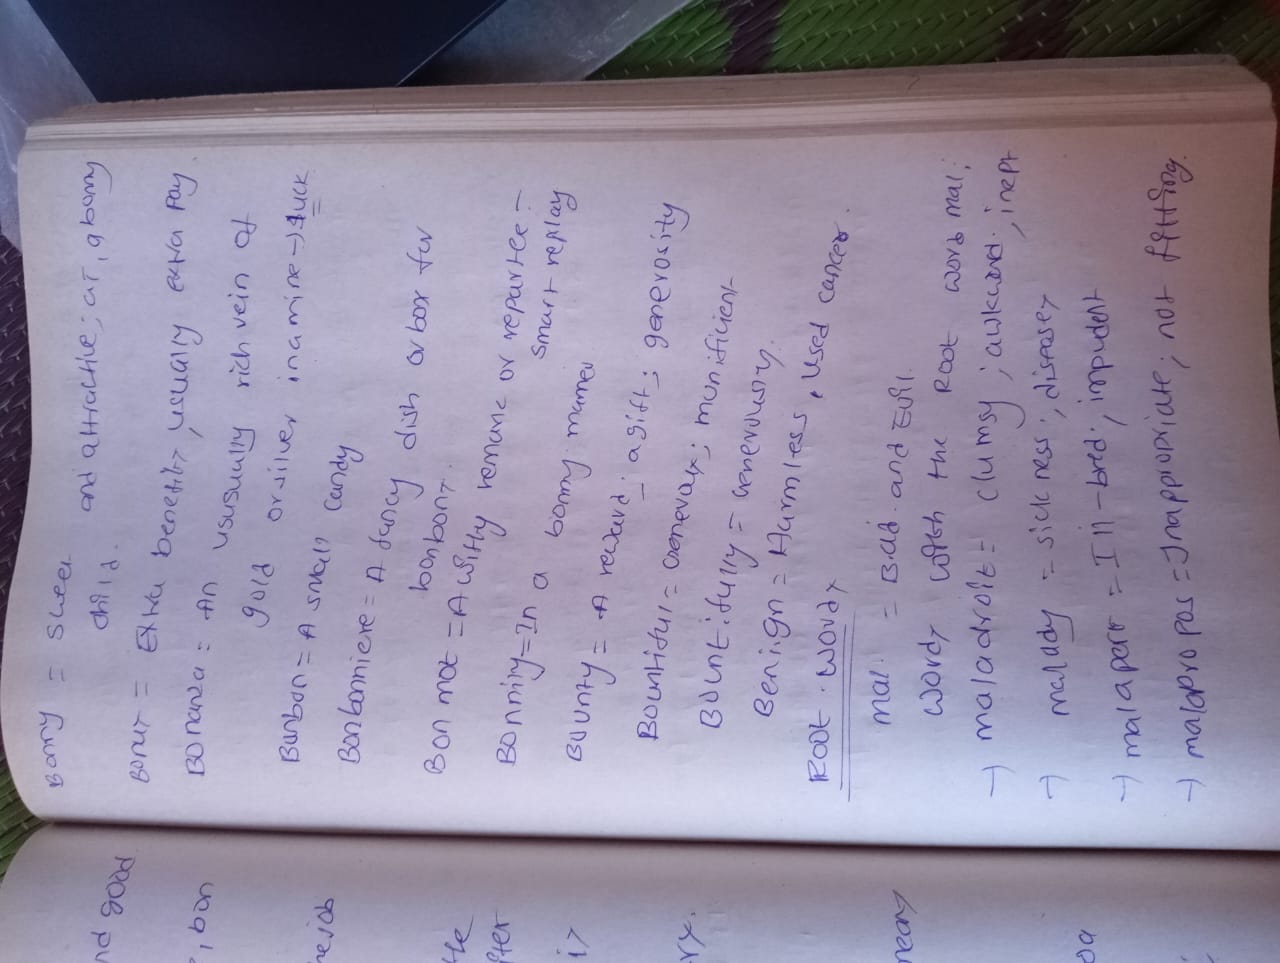 Bonny = Sweet and attractive; as, a bonny
child.
Bonus = Extra benefits, usually extra pay.
Bonanza = An ususually rich vein of
gold or silver in a mine → luck
Bonbon = A small candy
Bonbonniere = A fancy dish or box for
bonbons.
Bon mot = A witty remark or repartee =
smart replay
Bonnily = In a bonny manner
Bounty = A reward; a gift; generosity
Bountiful = Generous; munificient
Bountifully = Generously.
Benign = Harmless, used cancer.
Root. Words
mal. = Bad and Evil.
Words with the Root word mal;
→ maladroit = clumsy; awkward; inept
→ malady = sickness; diseases
→ malapert = Ill-bred; impudent
→ malapropos = Inappropriate; not fitting.
nd good
, bon
the
fter
is